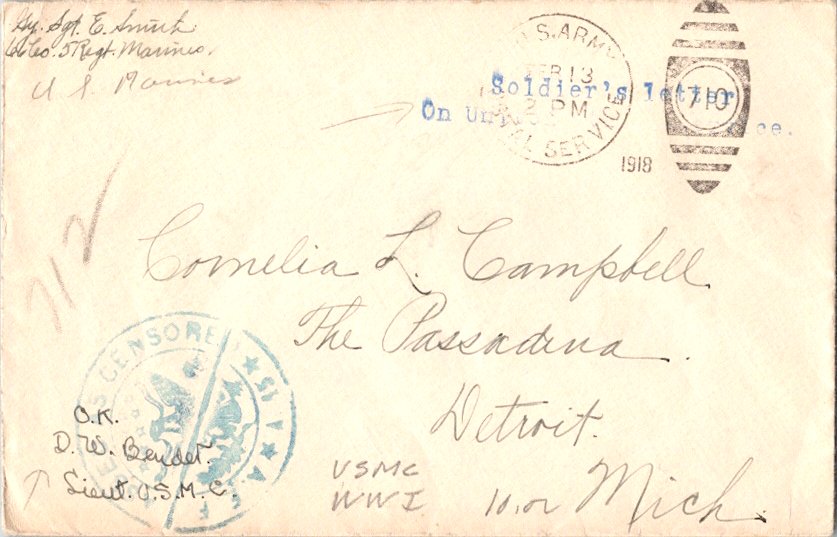 Gy. Sgt. E. Smith
Co. 5 Regt. Marines.
U S Marines
U.S. ARMY
FEB 13
2 PM
SERVICE
1918
710
Soldier's letter
On
712
Cornelia L. Campbell.
The Passadena.
Detroit.
Mich.
CENSORED
A.E.F.
O.K.
D. W. Bender.
Lieut. U.S.M.C.
USMC
WWI